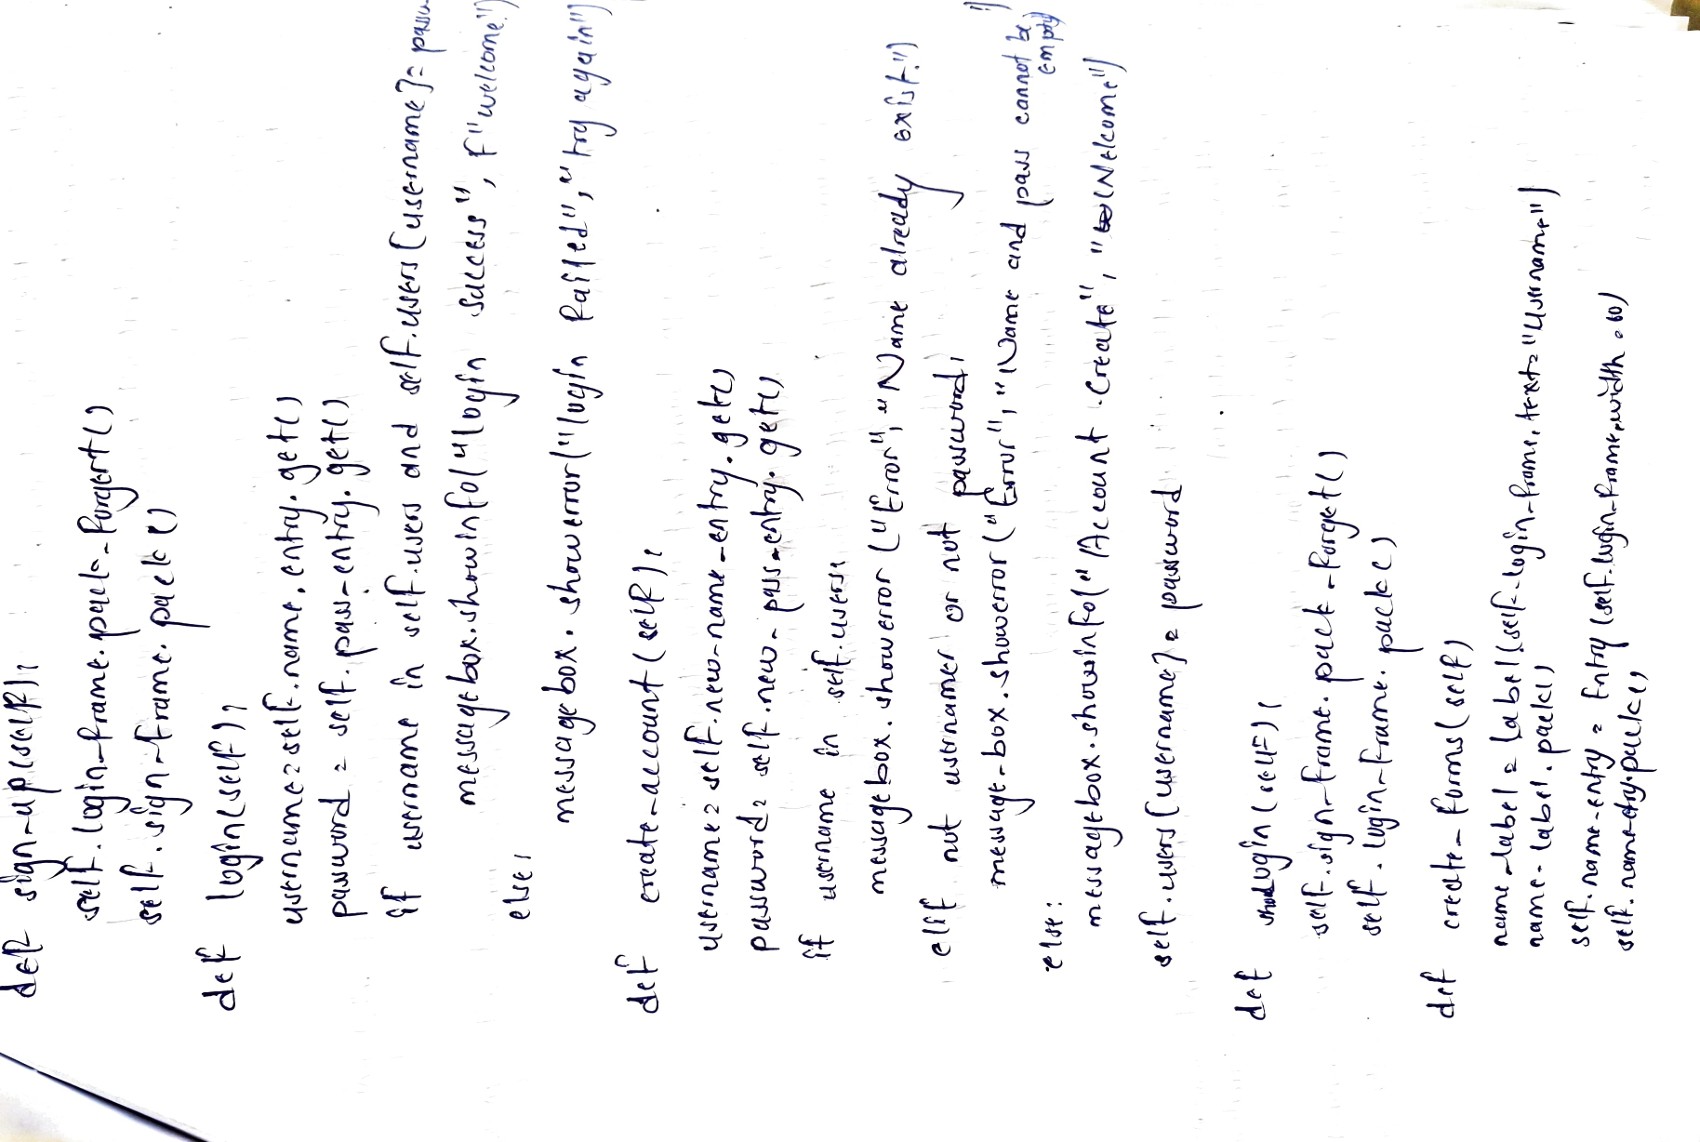 def sign-up(self):
self.login-frame.pack-forget()
self.sign-frame.pack()
def login(self):
username=self.name.entry.get()
password = self.pass-entry.get()
if username in self.users and self.users[username]= passw
messagebox.showinfo("login success", f"welcome")
else:
messagebox.showerror("login failed", "try again")
def create-account(self):
username= self.new-name-entry.get()
password= self.new-pass-entry.get()
if username in self.users:
messagebox.showerror("Error", "Name already exist.")
elif not username or not password:
message-box.showerror("Error", "Name and pass cannot be empty")
else:
messagebox.showinfo("Account Create", "Welcome")
self.users[username] = password
def showlogin(self):
self.sign-frame.pack-forget()
self.login-frame.pack()
def create-forms(self)
name-label = label(self-login-frame, text="username")
name-label.pack()
self.name-entry = Entry(self.login-frame,width.60)
self.name-entry.pack()